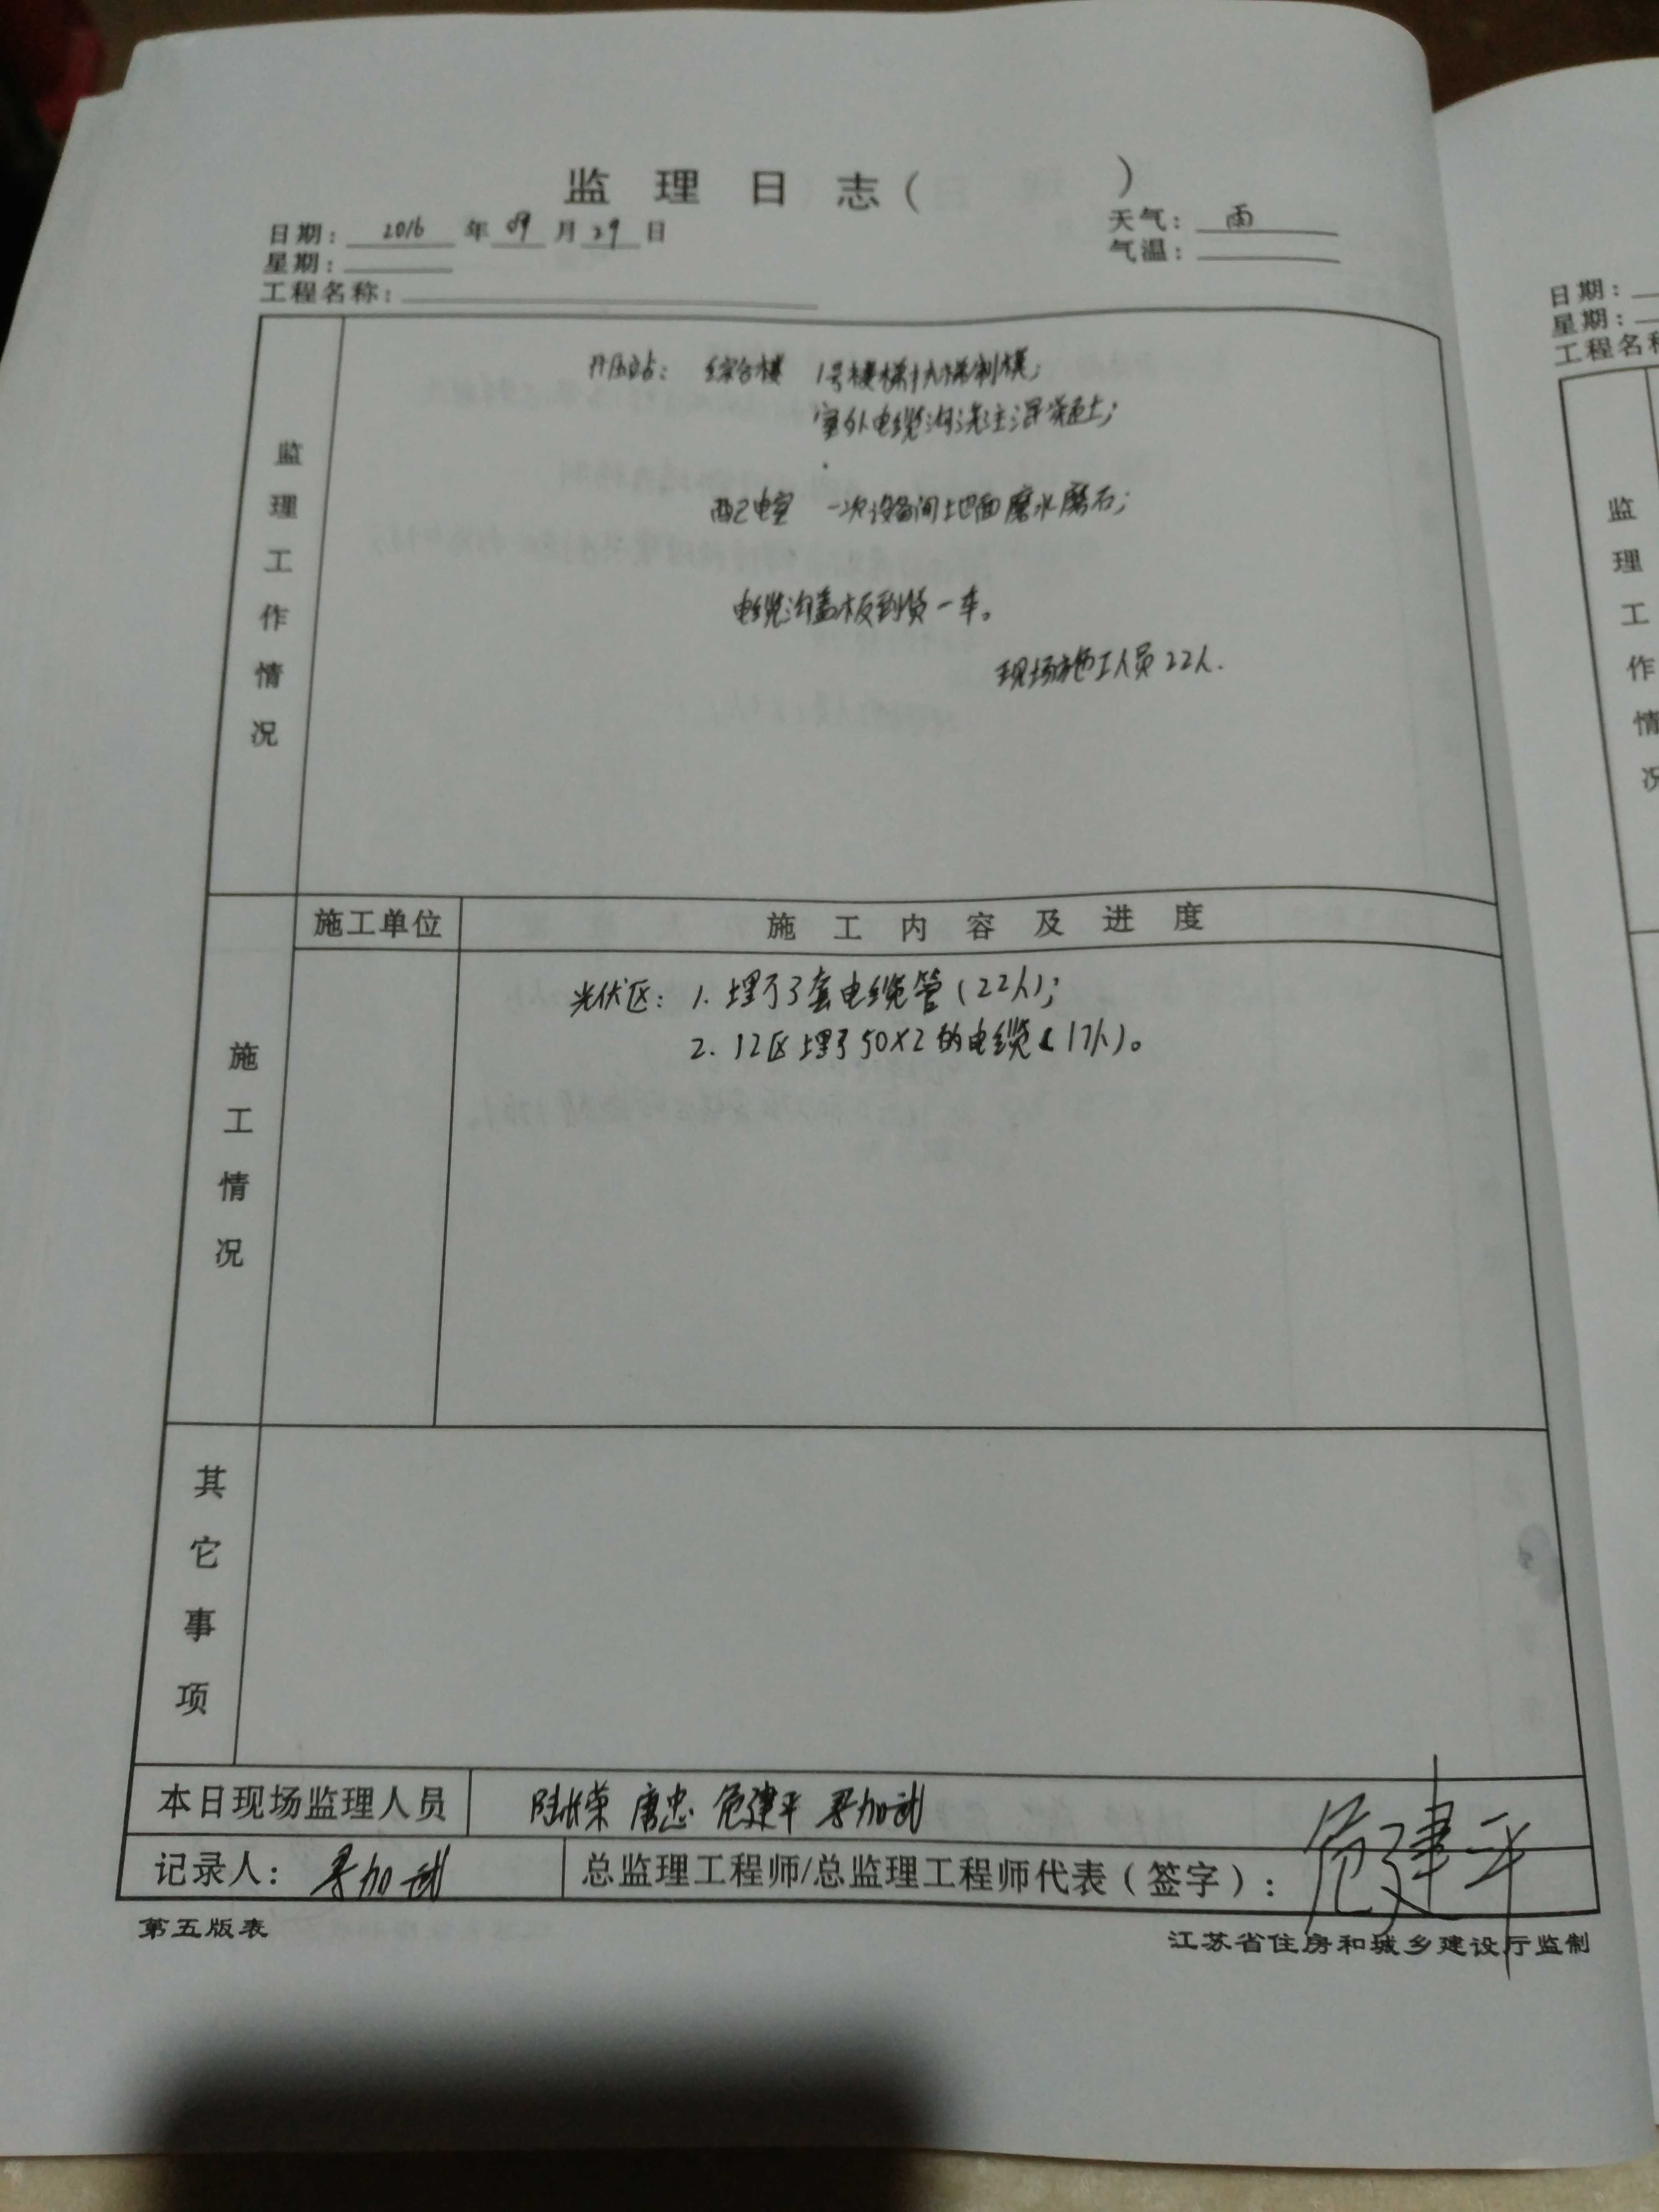 监理日志（ ）
日期：2016年09月29日 天气：雨
星期： 气温：
工程名称：
监理工作情况
升压站：综合楼 1号楼梯扶梯制模；
室外电缆沟浇注混凝土；
配电室 一次设备间地面磨水磨石；
电缆沟盖板到货一车。
现场施工人员22人.
施工情况
施工单位 施工内容及进度
光伏区：1. 埋了3套电缆管（22人）；
2. 12区埋了50×2的电缆（17人）。
其它事项
本日现场监理人员 陆长荣 唐忠 危建平 加武
记录人： 加武 总监理工程师/总监理工程师代表（签字）：危建平
第五版表 江苏省住房和城乡建设厅监制
日期：
星期：
工程名称
监理工作情况